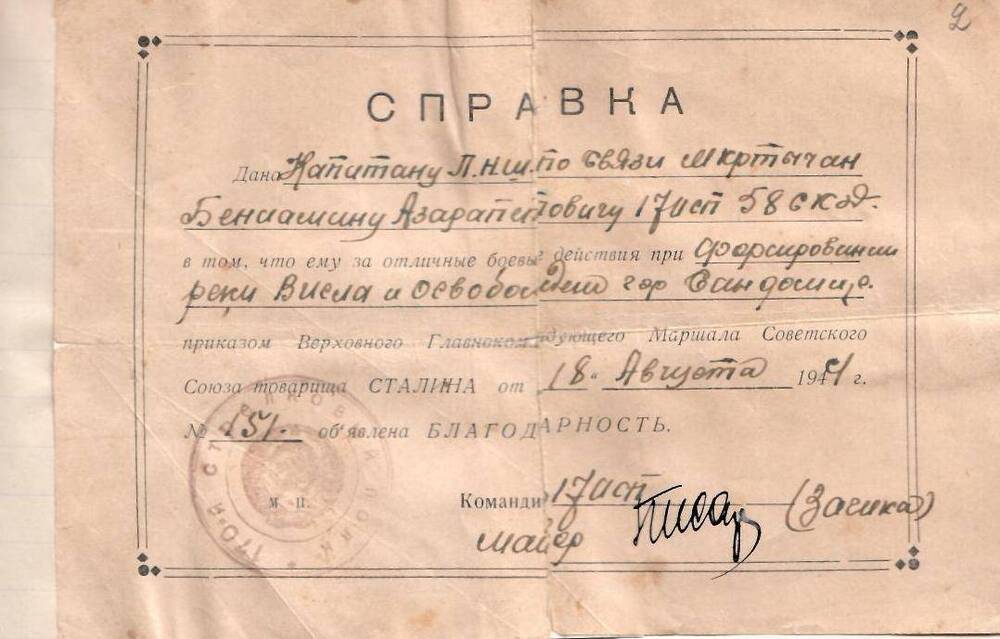 2
СПРАВКА
Дана Капитану П.НШ. по связи Мкртычан
Бениамину Азарапетовичу 170 сп 58 скд.
в том, что ему за отличные боевые действия при Форсировании
реки Висла и освобожден гор Сандомир.
приказом Верховного Главнокомандующего Маршала Советского
Союза товарища СТАЛИНА от 18. Августа 1944 г.
№ 151. объявлена БЛАГОДАРНОСТЬ.
м. п. Командир 170 сп
майор (Засика)
170-й СТРЕЛКОВЫЙ ПОЛК